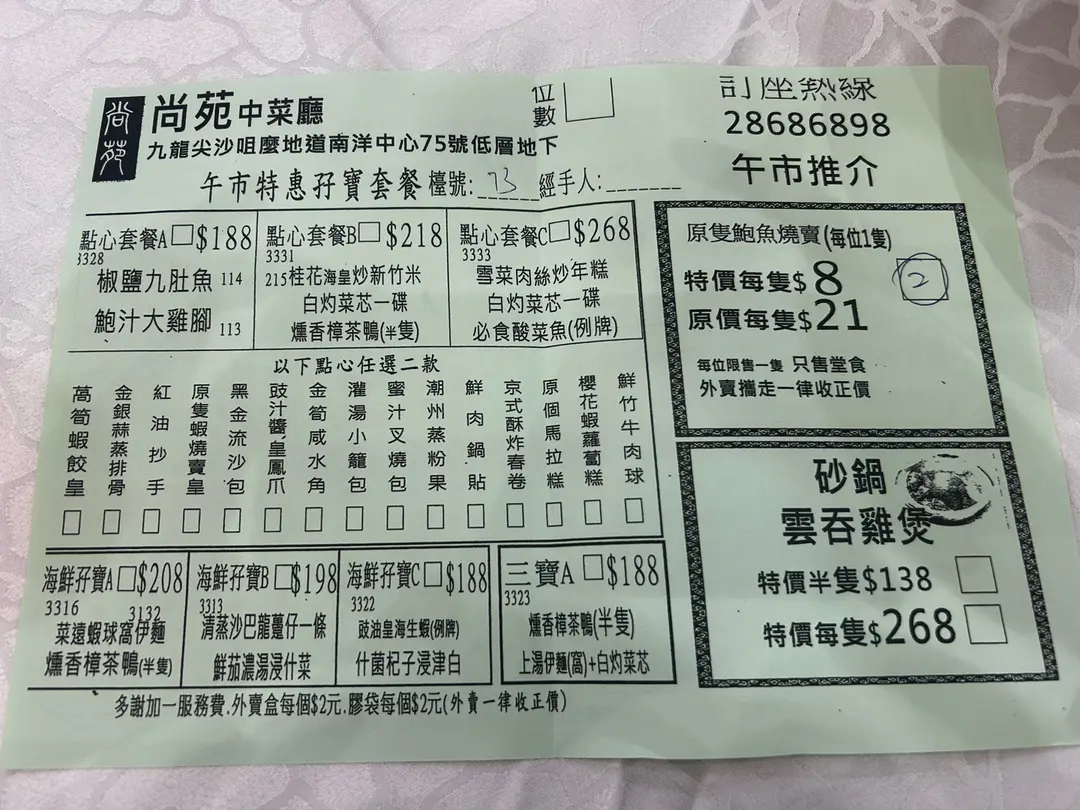 尚苑
尚苑中菜廳
九龍尖沙咀麼地道南洋中心75號低層地下
位數
訂座熱線
28686898
午市特惠孖寶套餐 檯號:73 經手人:_______
午市推介
點心套餐A□$188
3328
椒鹽九肚魚 114
鮑汁大雞腳 113
點心套餐B□$218
3331
215桂花海皇炒新竹米
白灼菜芯一碟
燻香樟茶鴨(半隻)
點心套餐C□$268
3333
雪菜肉絲炒年糕
白灼菜芯一碟
必食酸菜魚(例牌)
以下點心任選二款
萵筍蝦餃皇□
金銀蒜蒸排骨□
紅油抄手□
原隻蝦燒賣皇□
黑金流沙包□
豉汁醬皇鳳爪□
金筍咸水角□
灌湯小籠包□
蜜汁叉燒包□
潮州蒸粉果□
鮮肉鍋貼□
京式酥炸春卷□
原個馬拉糕□
櫻花蝦蘿蔔糕□
鮮竹牛肉球□
海鮮孖寶A□$208
3316 3132
菜遠蝦球窩伊麵
燻香樟茶鴨(半隻)
海鮮孖寶B□$198
3313
清蒸沙巴龍躉仔一條
鮮茄濃湯浸什菜
海鮮孖寶C□$188
3322
豉油皇海生蝦(例牌)
什菌杞子浸津白
三寶A □$188
3323
燻香樟茶鴨(半隻)
上湯伊麵(窩)+白灼菜芯
多謝加一服務費.外賣盒每個$2元.膠袋每個$2元(外賣一律收正價)
原隻鮑魚燒賣(每位1隻)
特價每隻$8 2
原價每隻$21
每位限售一隻 只售堂食
外賣攜走一律收正價
砂鍋
雲吞雞煲
特價半隻$138 □
特價每隻$268 □